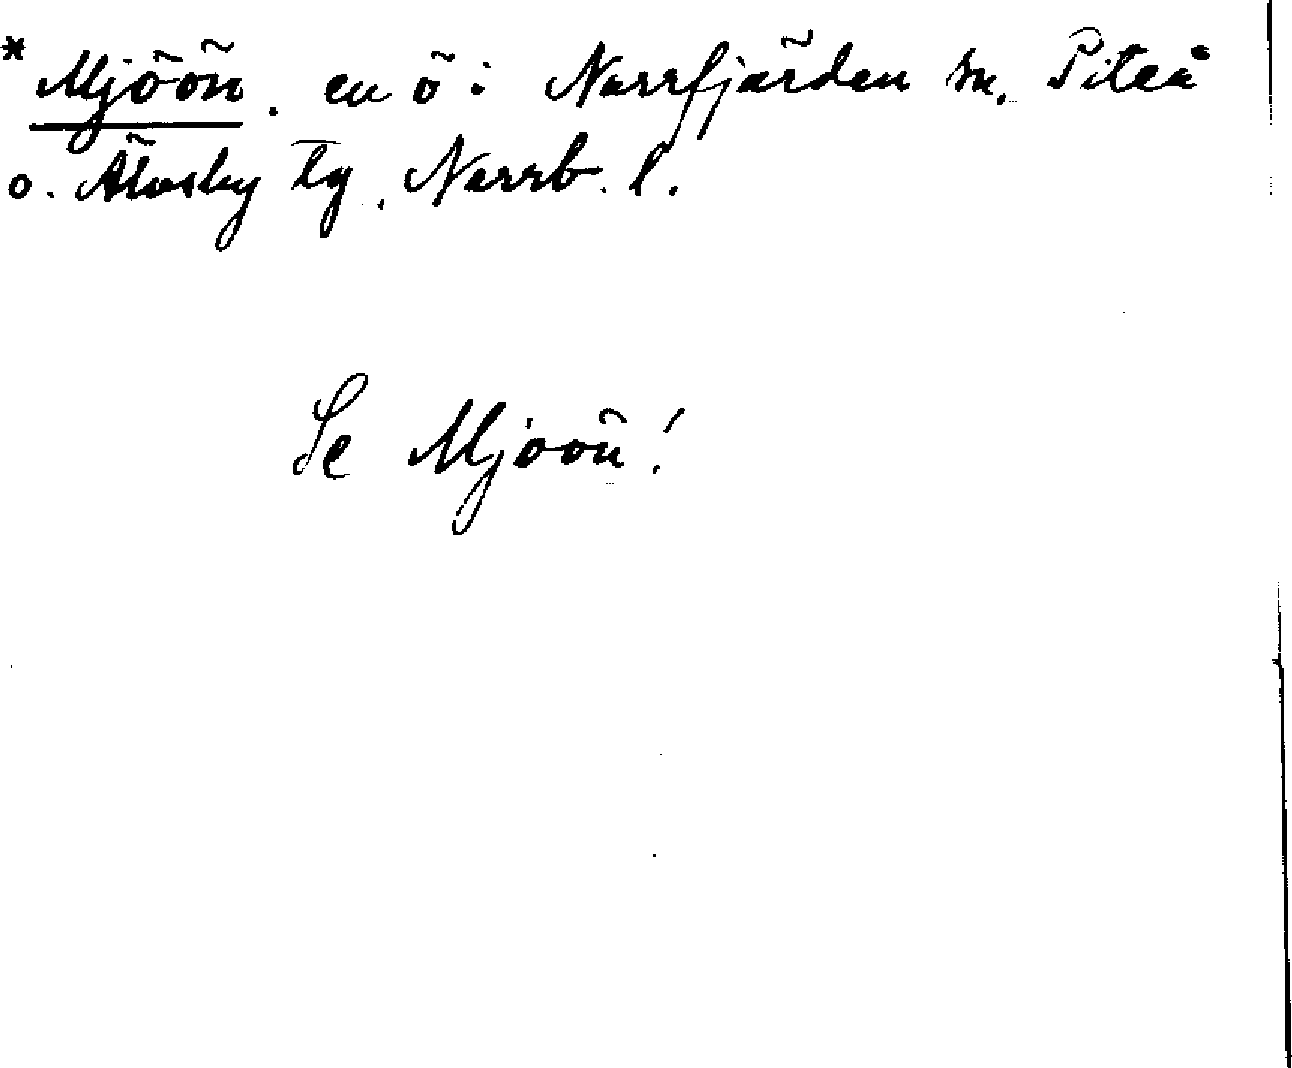 * Mjöön. en ö i Norrfjärden sn. Piteå
o. Älvsby tg, Norrb. l.
Se Mjoön!